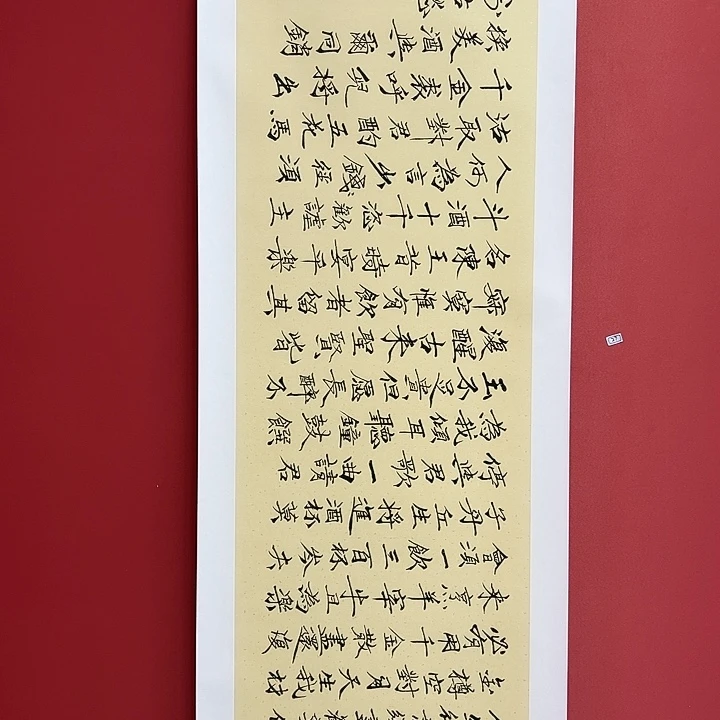 金樽空對月天生我材
必有用千金散盡還復
来烹羊宰牛且為樂
會須一飲三百杯岑夫
子丹丘生将進酒杯莫
停與君歌一曲請君
為我傾耳聽鐘鼓饌
玉不足貴但愿長醉不
復醒古来聖賢皆
寂寞惟有飲者留其
名陳王昔時宴平樂
斗酒十千恣歡謔主
人何為言少錢徑須
沽取對君酌五花馬
千金裘呼兒将出
換美酒與爾同銷